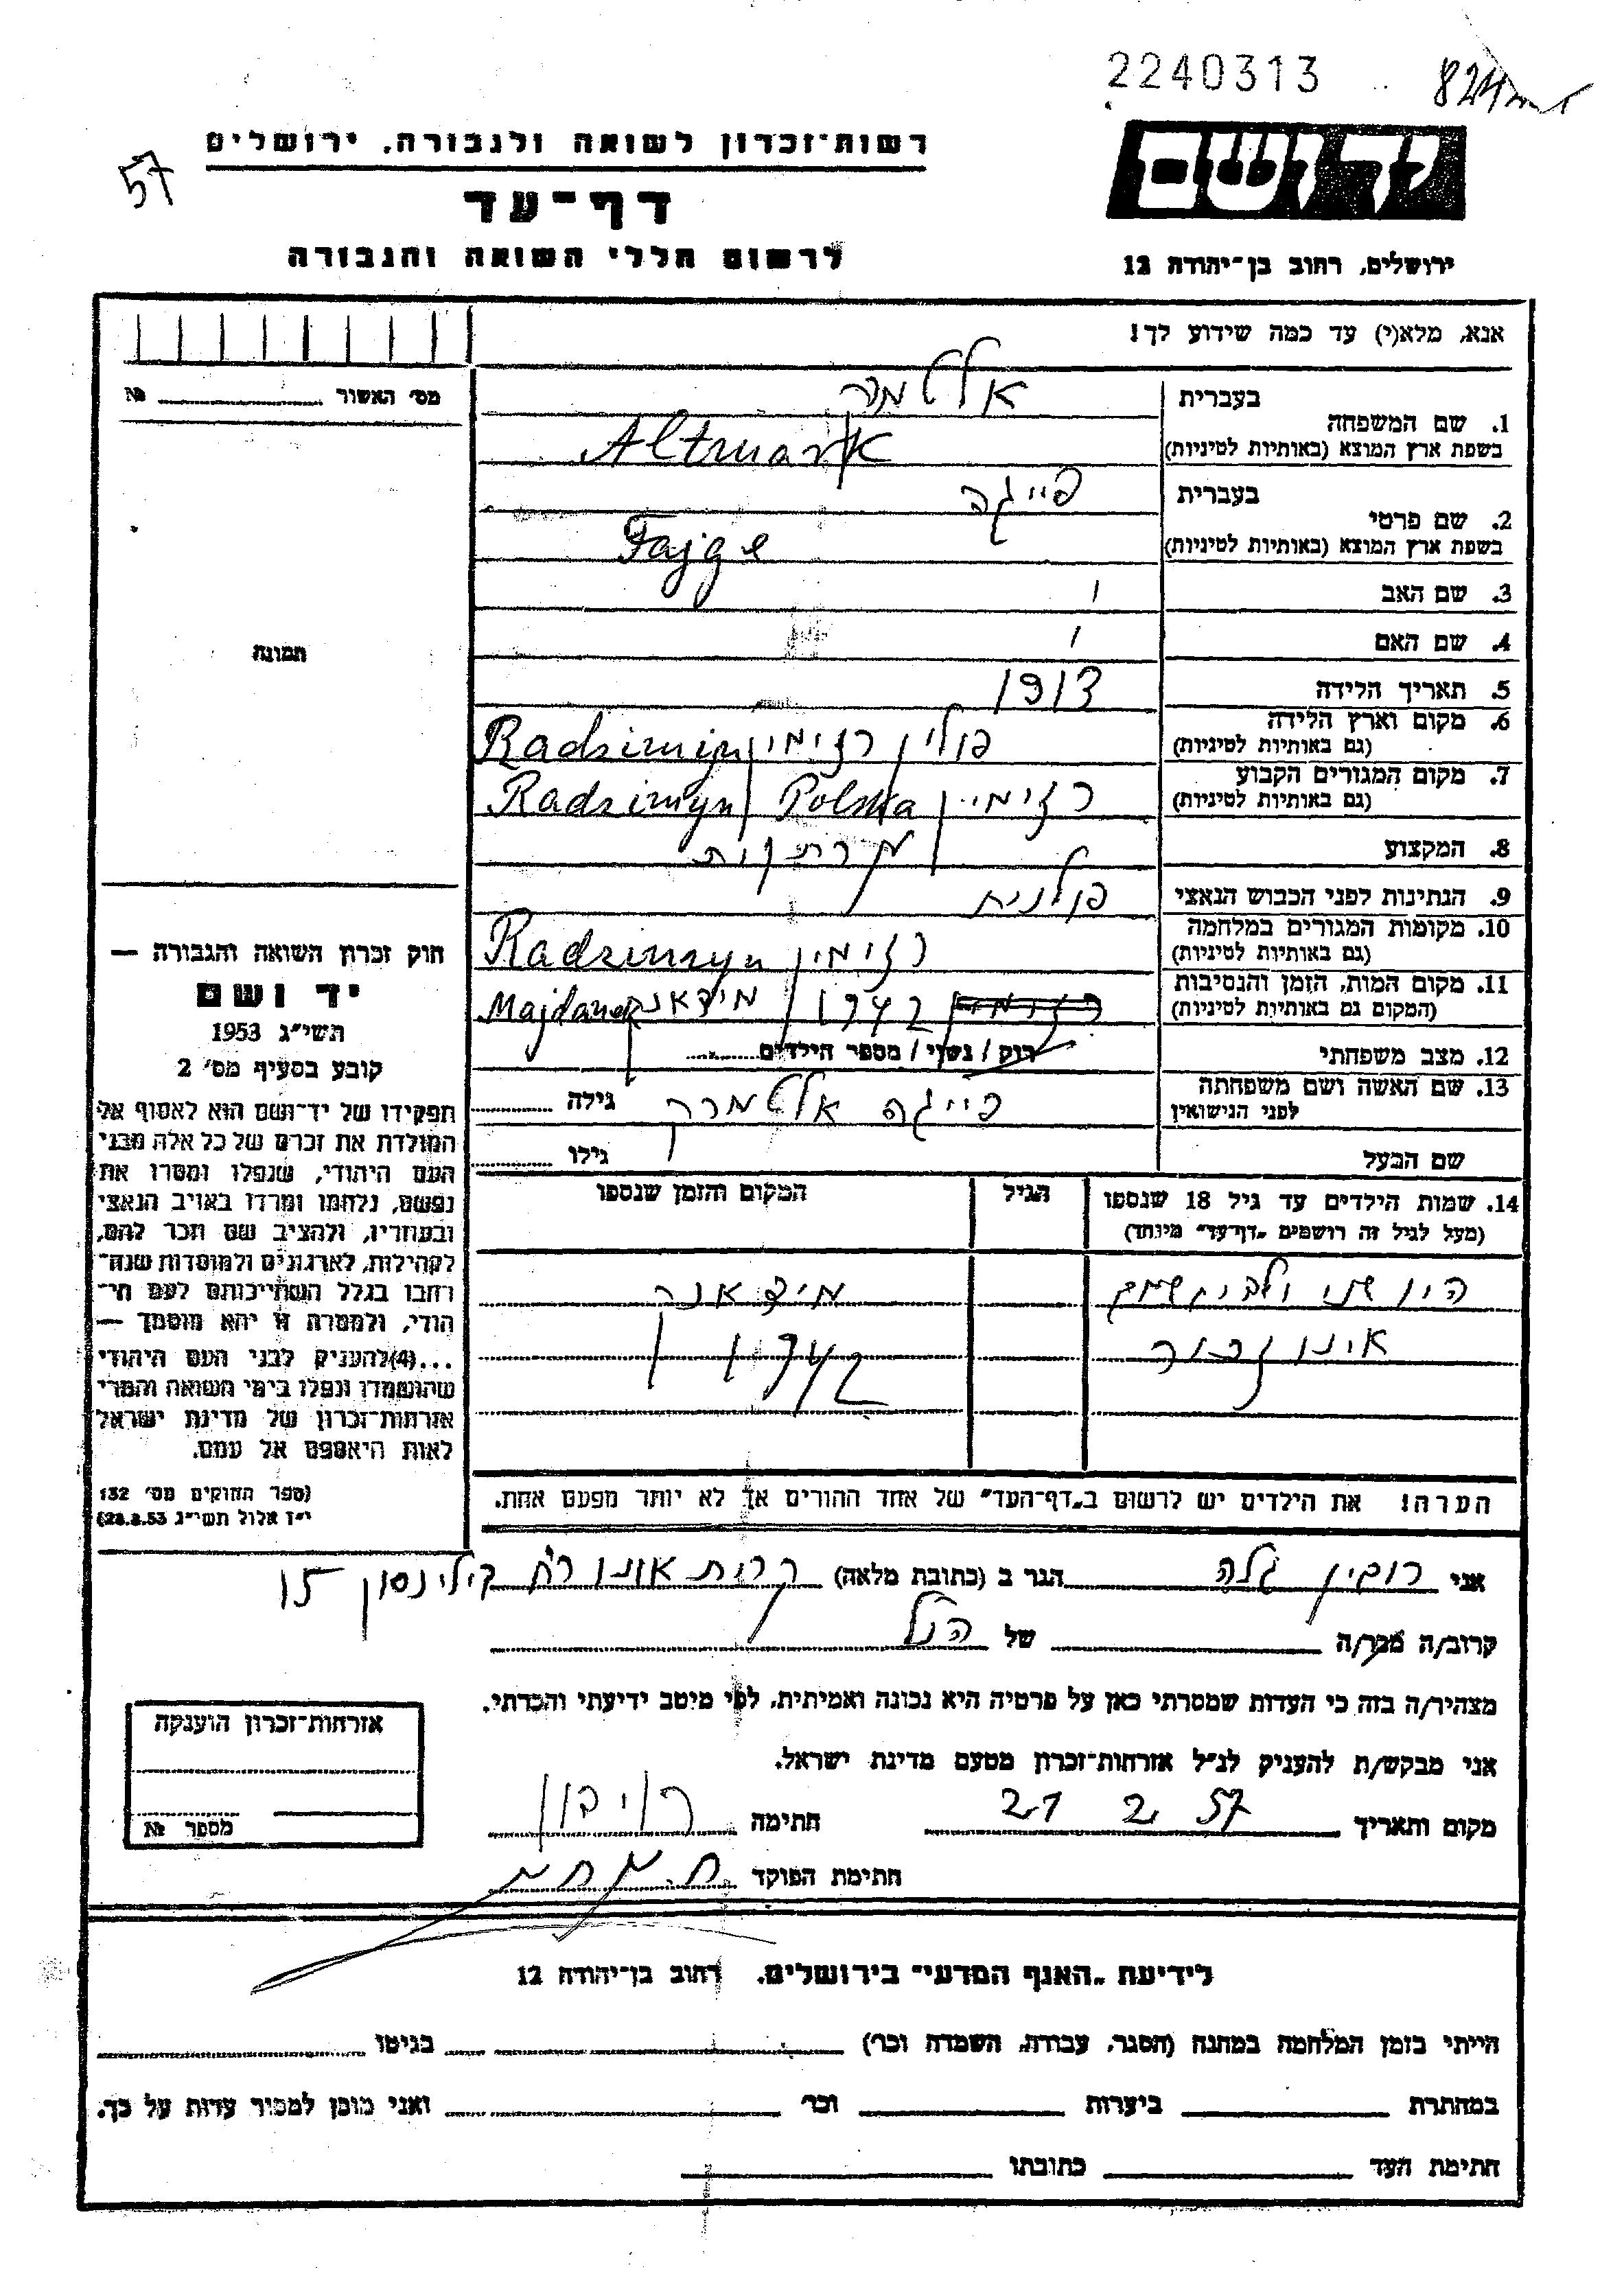 2240313
824
57
רשות־זכרון לשואה ולגבורה, ירושלים
יד ושם
דף־עד
לרשום חללי השואה והגבורה
ירושלים, רחוב בן־יהודה 12
אנא, מלא(י) עד כמה שידוע לך!
מס׳ האשור №
1. שם המשפחה
בעברית אלטמרק
בשפת ארץ המוצא (באותיות לטיניות) Altmark
2. שם פרטי
בעברית פייגה
בשפת ארץ המוצא (באותיות לטיניות) Fajge
3. שם האב
4. שם האם
5. תאריך הלידה 1913
6. מקום וארץ הלידה פולין רדזימין Radzimin
(גם באותיות לטיניות)
7. מקום המגורים הקבוע רדזימין Radzimyn Polska
(גם באותיות לטיניות)
8. המקצוע
9. הנתינות לפני הכבוש הנאצי פולנית
10. מקומות המגורים במלחמה רדזימין Radzimyn
(גם באותיות לטיניות)
11. מקום המות, הזמן והנסיבות 1942 מידאנק Majdanek
(המקום גם באותיות לטיניות)
12. מצב משפחתי רוק / נשוי / מספר הילדים
13. שם האשה ושם משפחתה פייגה אלטמרק גילה
לפני הנישואין
שם הבעל גילו
14. שמות הילדים עד גיל 18 שנספו הגיל המקום והזמן שנספו
(מעל לגיל זה רושמים „דף־עד” מיוחד)
היו שני מידאנק
אינו זכור 1942
הערה! את הילדים יש לרשום ב„דף־העד” של אחד ההורים אך לא יותר מפעם אחת.
תמונה
חוק זכרון השואה והגבורה —
יד ושם
תשי״ג 1953
קובע בסעיף מס׳ 2
תפקידו של יד־ושם הוא לאסוף אל
המולדת את זכרם של כל אלה מבני
העם היהודי, שנפלו ומסרו את
נפשם, נלחמו ומרדו באויב הנאצי
ובעוזריו, ולהציב שם וזכר להם,
לקהילות, לארגונים ולמוסדות שנח־
רחבו בגלל השתייכותם לעם הי־
הודי, ולמטרה זו יהא מוסמך —
...(4)להעניק לבני העם היהודי
שהושמדו ונפלו בימי השואה והמרי
אזרחות־זכרון של מדינת ישראל
לאות היאספם אל עמם.
(ספר החוקים מס׳ 132
י״ז אלול תשי״ג 28.8.53)
אני רובין גלה הגר ב (כתובת מלאה) קרית אונו רח קילינסון 15
קרוב/ה מכר/ה של הנ״ל
מצהיר/ה בזה כי העדות שמסרתי כאן על פרטיה היא נכונה ואמיתית, לפי מיטב ידיעתי והכרתי.
אני מבקש/ת להעניק לנ״ל אזרחות־זכרון מטעם מדינת ישראל.
מקום ותאריך 21 2 57 חתימה רובין
חתימת הפוקד
אזרחות־זכרון הוענקה
מספר №
לידיעת „האגף המדעי” בירושלים, רחוב בן־יהודה 12
הייתי בזמן המלחמה במחנה (הסגר, עבודה, השמדה וכו׳) בגיטו
במחתרת ביערות וכו׳ ואני מוכן למסור עדות על כך.
חתימת העד כתובתו